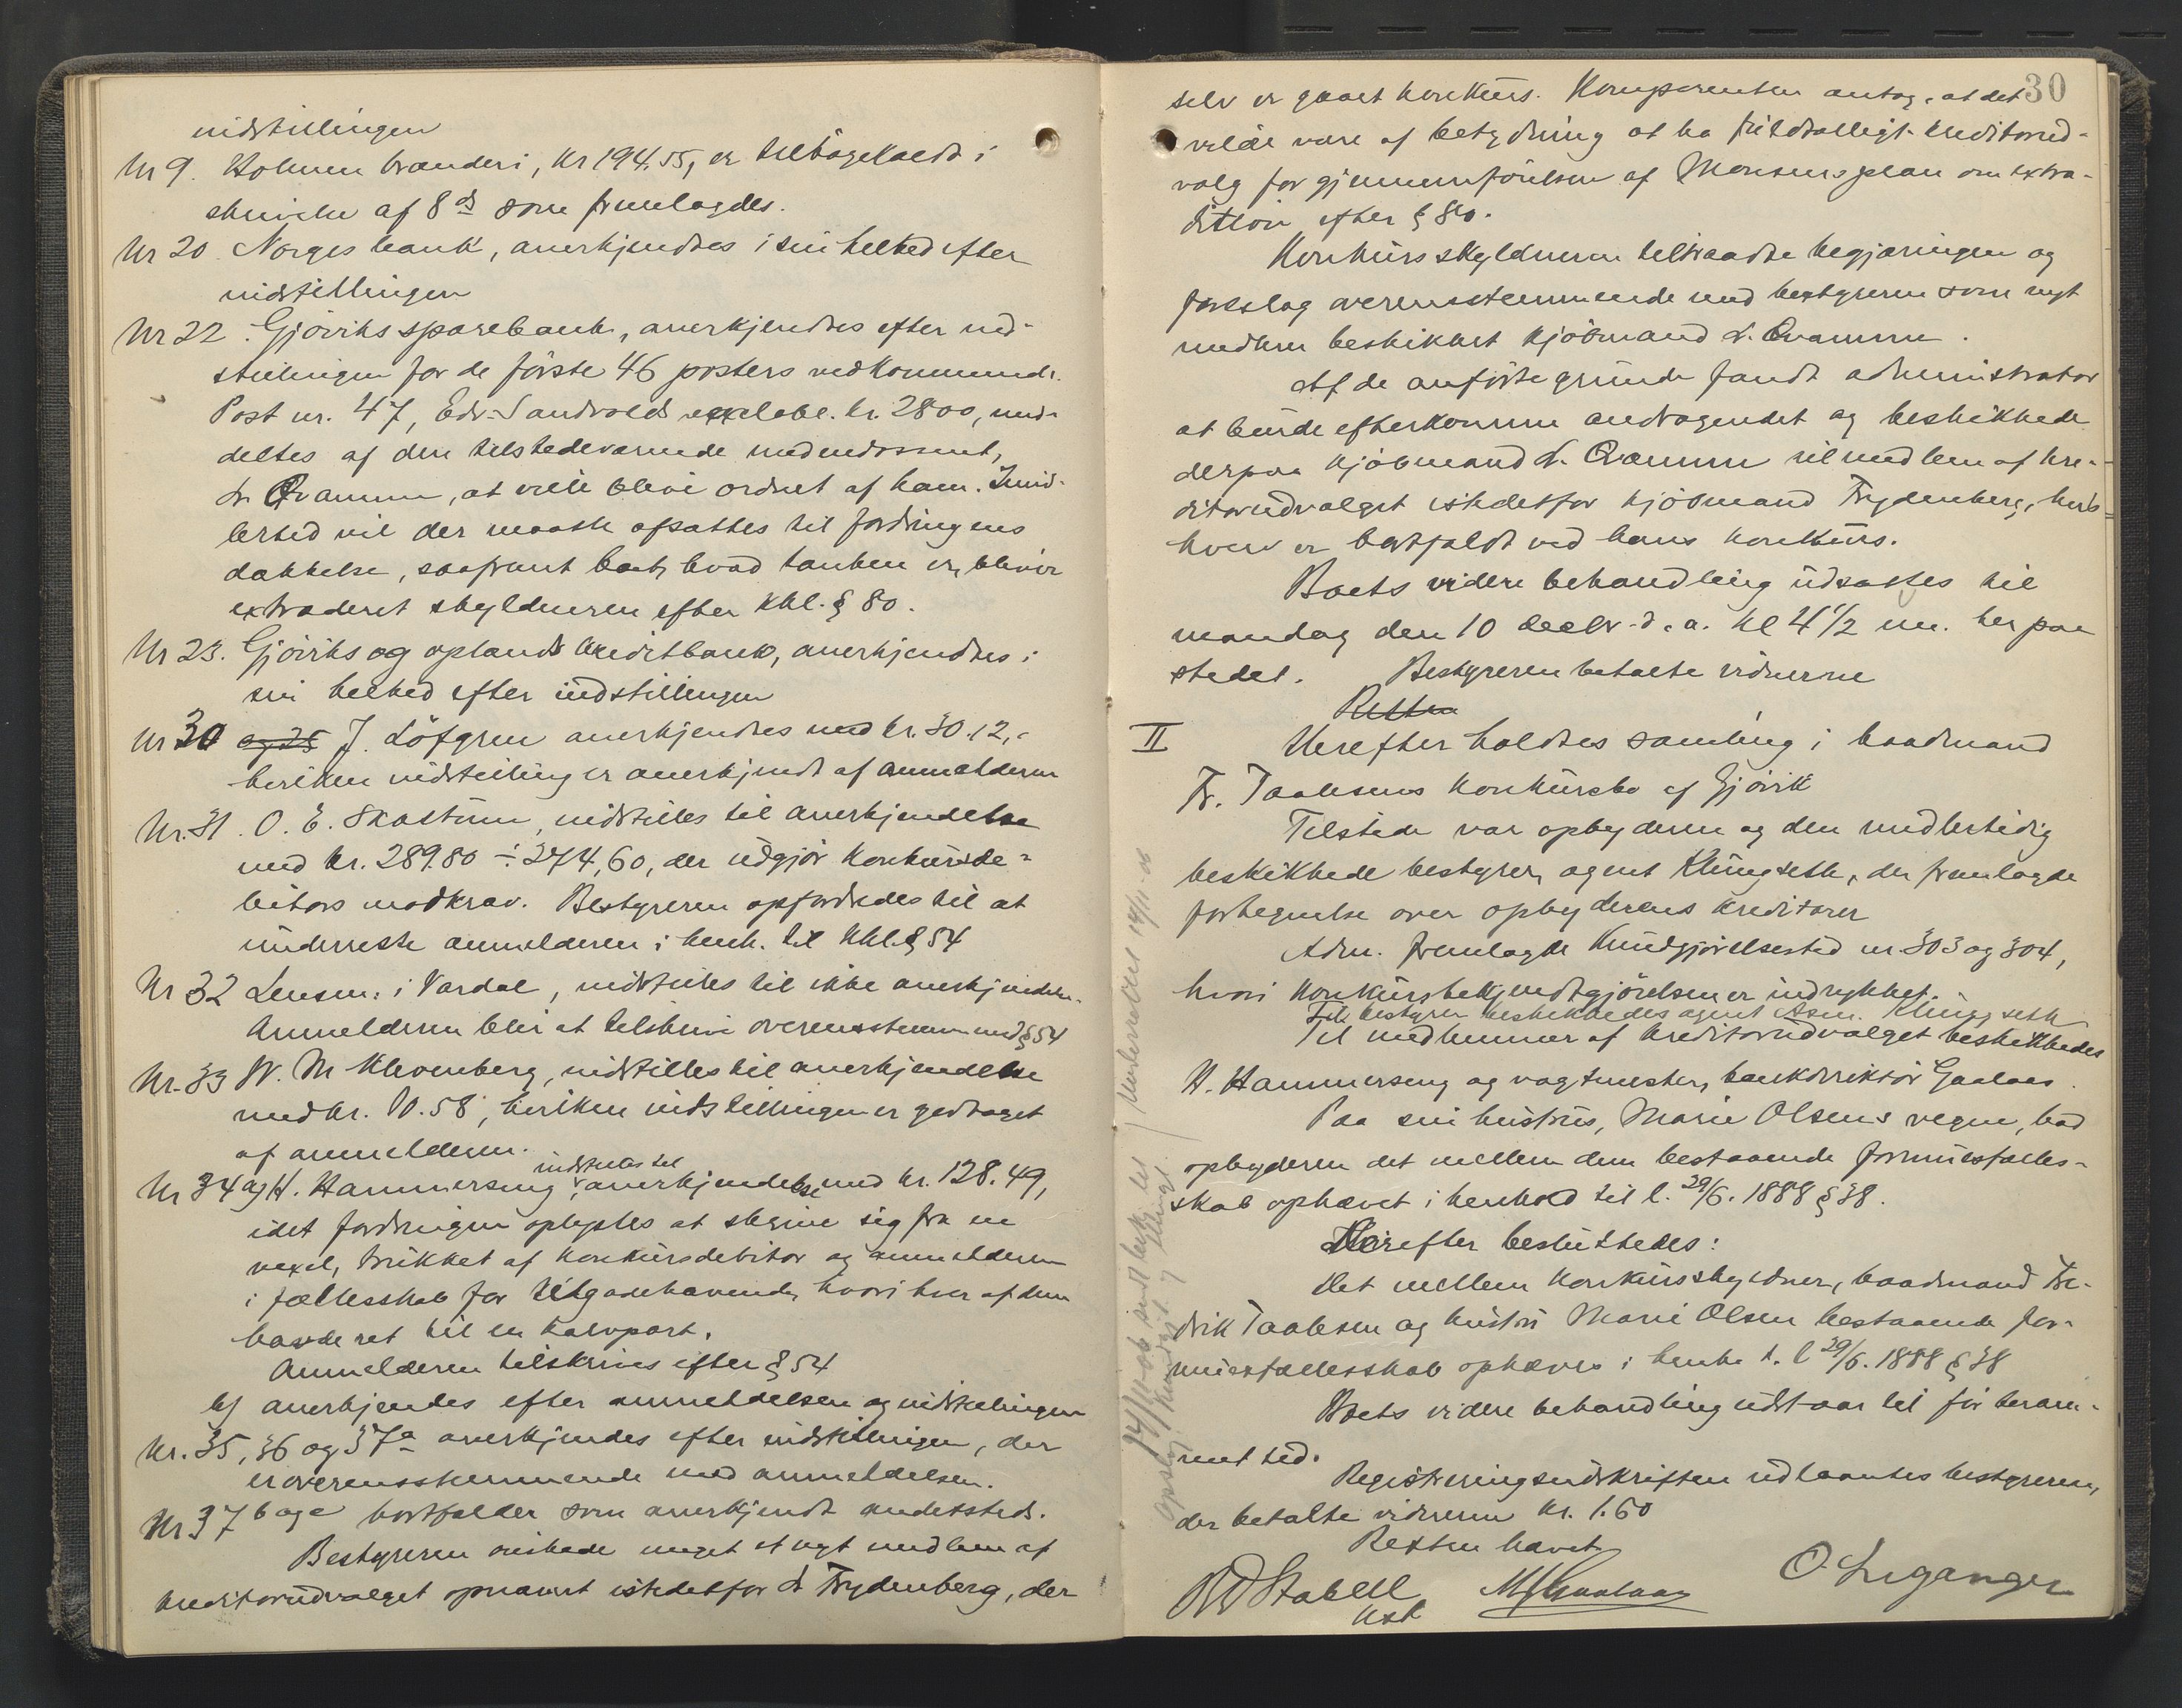 indstillingen
Nr 9. Holmen brænderi, kr 194.55, er tilbagekaldt i
skrivelse af 8 ds som fremlagdes.
Nr 20. Norges bank, anerkjendtes i sin helhed efter
indstillingen
Nr 22. Gjøviks sparebank, anerkjendtes efter ind-
stillingen for de første 46 posters vedkommende.
Post nr. 47, Edv. Sandvolds vexelobl. kr. 2800, med-
deltes af den tilstedeværende medendossent,
L. Qvamme, at ville blive ordnet af ham. Imid-
lertid vil der maatte afsættes til fordringens
dækkelse, saafremt boet, hvad tanken er, bliver
extraderet skyldneren efter kkl. § 80.
Nr 23. Gjøviks og oplands kreditbank, anerkjendtes i
sin helhed efter indstillingen
Nr 30 og 25 J. Löfgren anerkjendtes med kr. 30.12,-
hvilken indstilling er anerkjendt af anmelderen
Nr. 31. O. E. Skattum, indstilles til anerkjendelse
med kr. 289.80 ÷ 274,60, der udgjør konkursde-
bitors modkrav. Bestyreren opfordredes til at
underrette anmelderen i henh. til kkl. § 54
Nr 32 Lensm. i Vardal, indstilles til ikke anerkjendelse.
Anmelderen blir at tilskrive overensstemm. med § 54
Nr. 33 W. M. Klevenberg, indstilles til anerkjendelse
med kr. 10.58, hvilken indstillingen er godtaget
af anmelderen.
indstilles til
Nr 34 a) H. Hammerseng anerkjendelse med kr. 128.49,
idet fordringen oplystes at skrive sig fra en
vexel, trukket af konkursdebitor og anmelderen
i fællesskab for tilgodehavende, hvori hver af dem
havde ret til en halvpart.
Anmelderen tilskrives efter § 54
b) anerkjendes efter anmeldelsen og indstillingen
Nr. 35, 36 og 37 a anerkjendes efter indstillingen, der
er overensstemmende med anmeldelsen.
Nr 37 b og c bortfalder som anerkjendt andetsteds.
Bestyreren ønskede meget et nyt medlem af
kreditorudvalget opnævnt istedetfor L Frydenberg, der
30
selv er gaaet konkurs. Komparenten antog, at det
vilde være af betydning at ha fuldtalligt kreditorud-
valg for gjennemførelsen af Monsens plan om extra-
dition efter § 80.
Konkursskyldneren tiltraadte begjæringen og
foreslog overensstemmende med bestyreren som nyt
medlem beskikket kjøbmand L. Qvamme.
Af de anførte grunde fandt administrator
at burde efterkomme andragendet og beskikkede
derpaa kjøbmand L. Qvamme til medlem af kre-
ditorudvalget istedetfor kjøbmand Frydenberg, hvis
hverv er bortfaldt ved hans konkurs.
Boets videre behandling udsattes til
mandag den 10 decbr. d. a. kl 4 1/2 em. her paa
stedet. Bestyreren betalte vidnerne
Retten
II Herefter holdtes samling i baadmand
Fr. Paalesens konkursbo af Gjøvik
Tilstede var opbyderen og den midlertidig
beskikkede bestyrer, agent Klungseth, der fremlagde
fortegnelse over opbyderens kreditorer
Adm. fremlagde Kundgjørelsestid nr 303 og 304,
hvori konkursbekjendtgjørelsen er indrykket.
Til bestyrer beskikkedes agent Asm. Klungseth
Til medlemmer af kreditorudvalget beskikkedes
H. Hammerseng og vagtmester, bankdirektør Gaalaas.
Paa sin hustrus, Marie Olsens vegne, bad
opbyderen det mellem dem bestaaende formuesfælles-
skab ophævet i henhold til l. 29/6. 1888 § 38.
Herefter besluttedes:
Det mellem konkursskyldner, baadmand Fre-
drik Paalesen og hustru Marie Olsen bestaaende for-
muesfællesskab ophæves i henh. t. l 29/6. 1888 § 38
Boets videre behandling udstaar til før beram-
met tid.
Registreringsudskriften udlaantes bestyreren,
der betalte vidnerne kr. 1.60
Retten hævet
Stabell
kst
M Gaalaas
O. Leganger